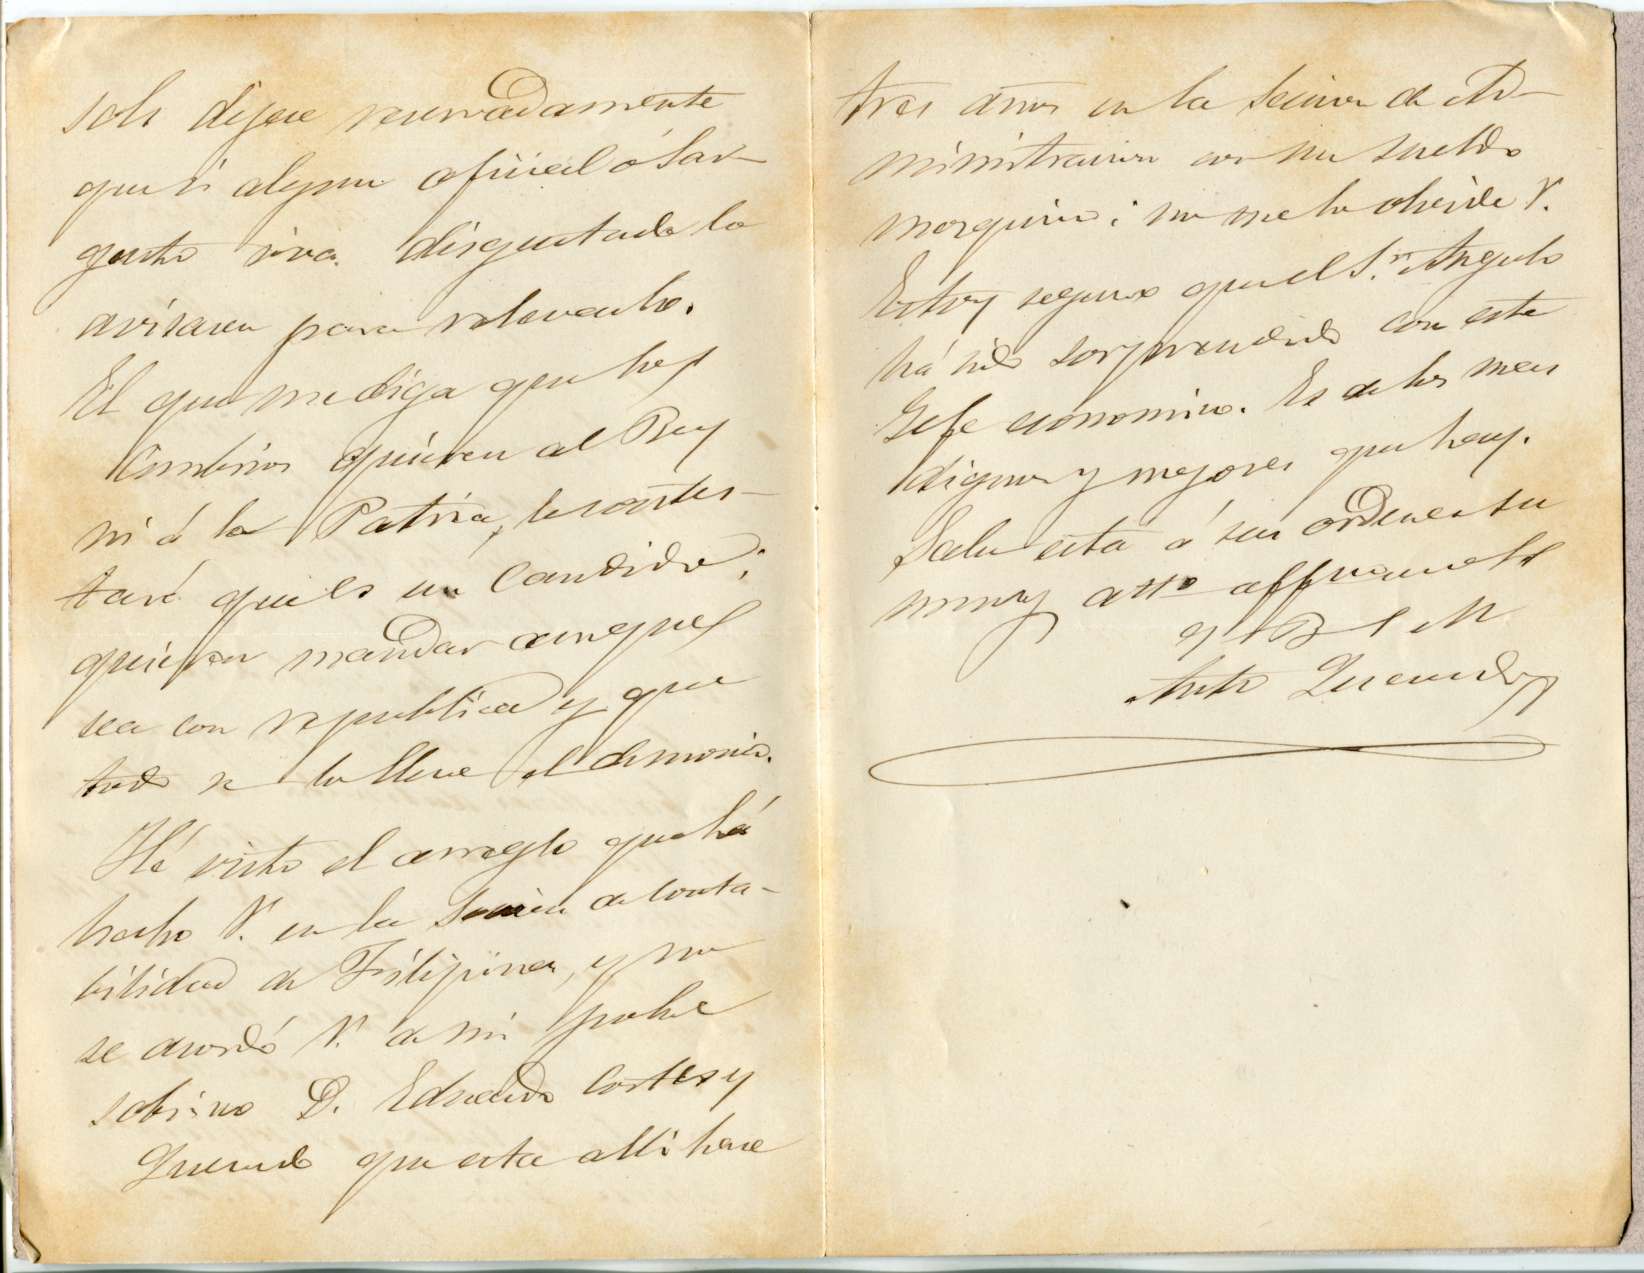 solo dijese reservadamente
que si algun oficial ó Sar-
gento sirva disgustado lo
avisasen para relevarlo.
El que me diga que hoy
Cambian quieren al Rey
ni á la Patria, le contes-
taré que es un Candido;
quieren mandar aunque
sea con republica y que
todo se lo lleve el demonio.
Hé visto el arreglo que há
hecho V. en la Seccion de Conta-
bilidad de Filipinas, y no
se acordó V. de mi pobre
sobrino D. Eduardo Cortes y
Quevedo que esta alli hace
tres años en la Seccion de Ad-
ministracion con un sueldo
mezquino; no me lo olvide V.
Estoy seguro que el Sr. Angulo
há sido sorprendido con este
Gefe economico. Es de los mas
dignos y mejores que hay.
Sabe esta á sus ordenes su
muy atto affmo
q B S M
Anto Quevedo